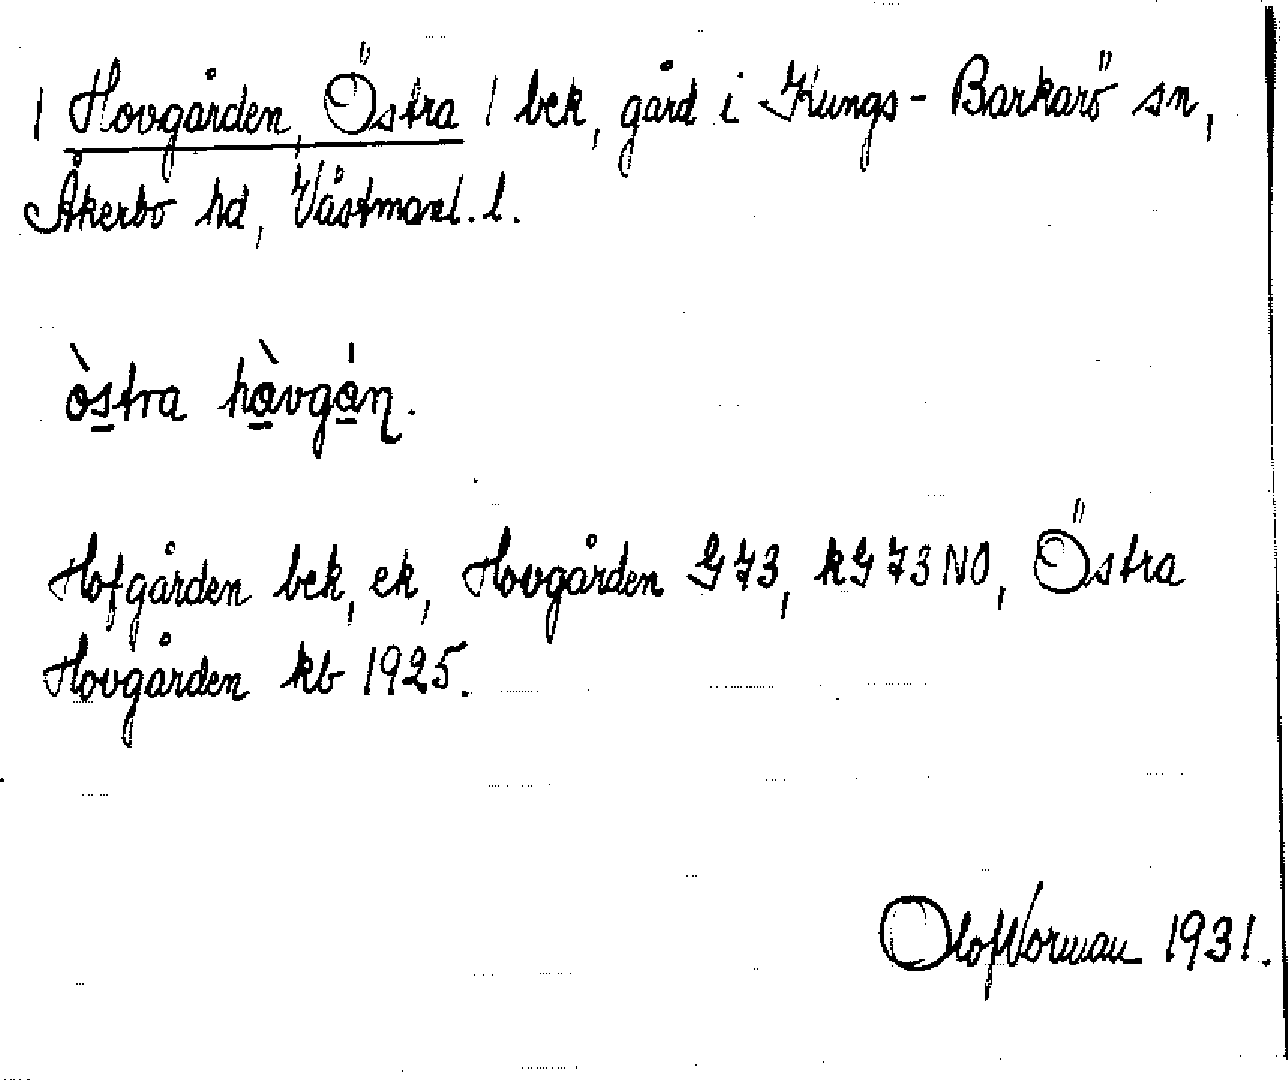 | Hovgården, Östra | bek, gård i Kungs-Barkarö sn,
Åkerbo hd, Västmanl. l.
östra hàvgán.
Hofgården bek, ek, Hovgården G73, kG73NO, Östra
Hovgården kb 1925.
Olof Norman 1931.